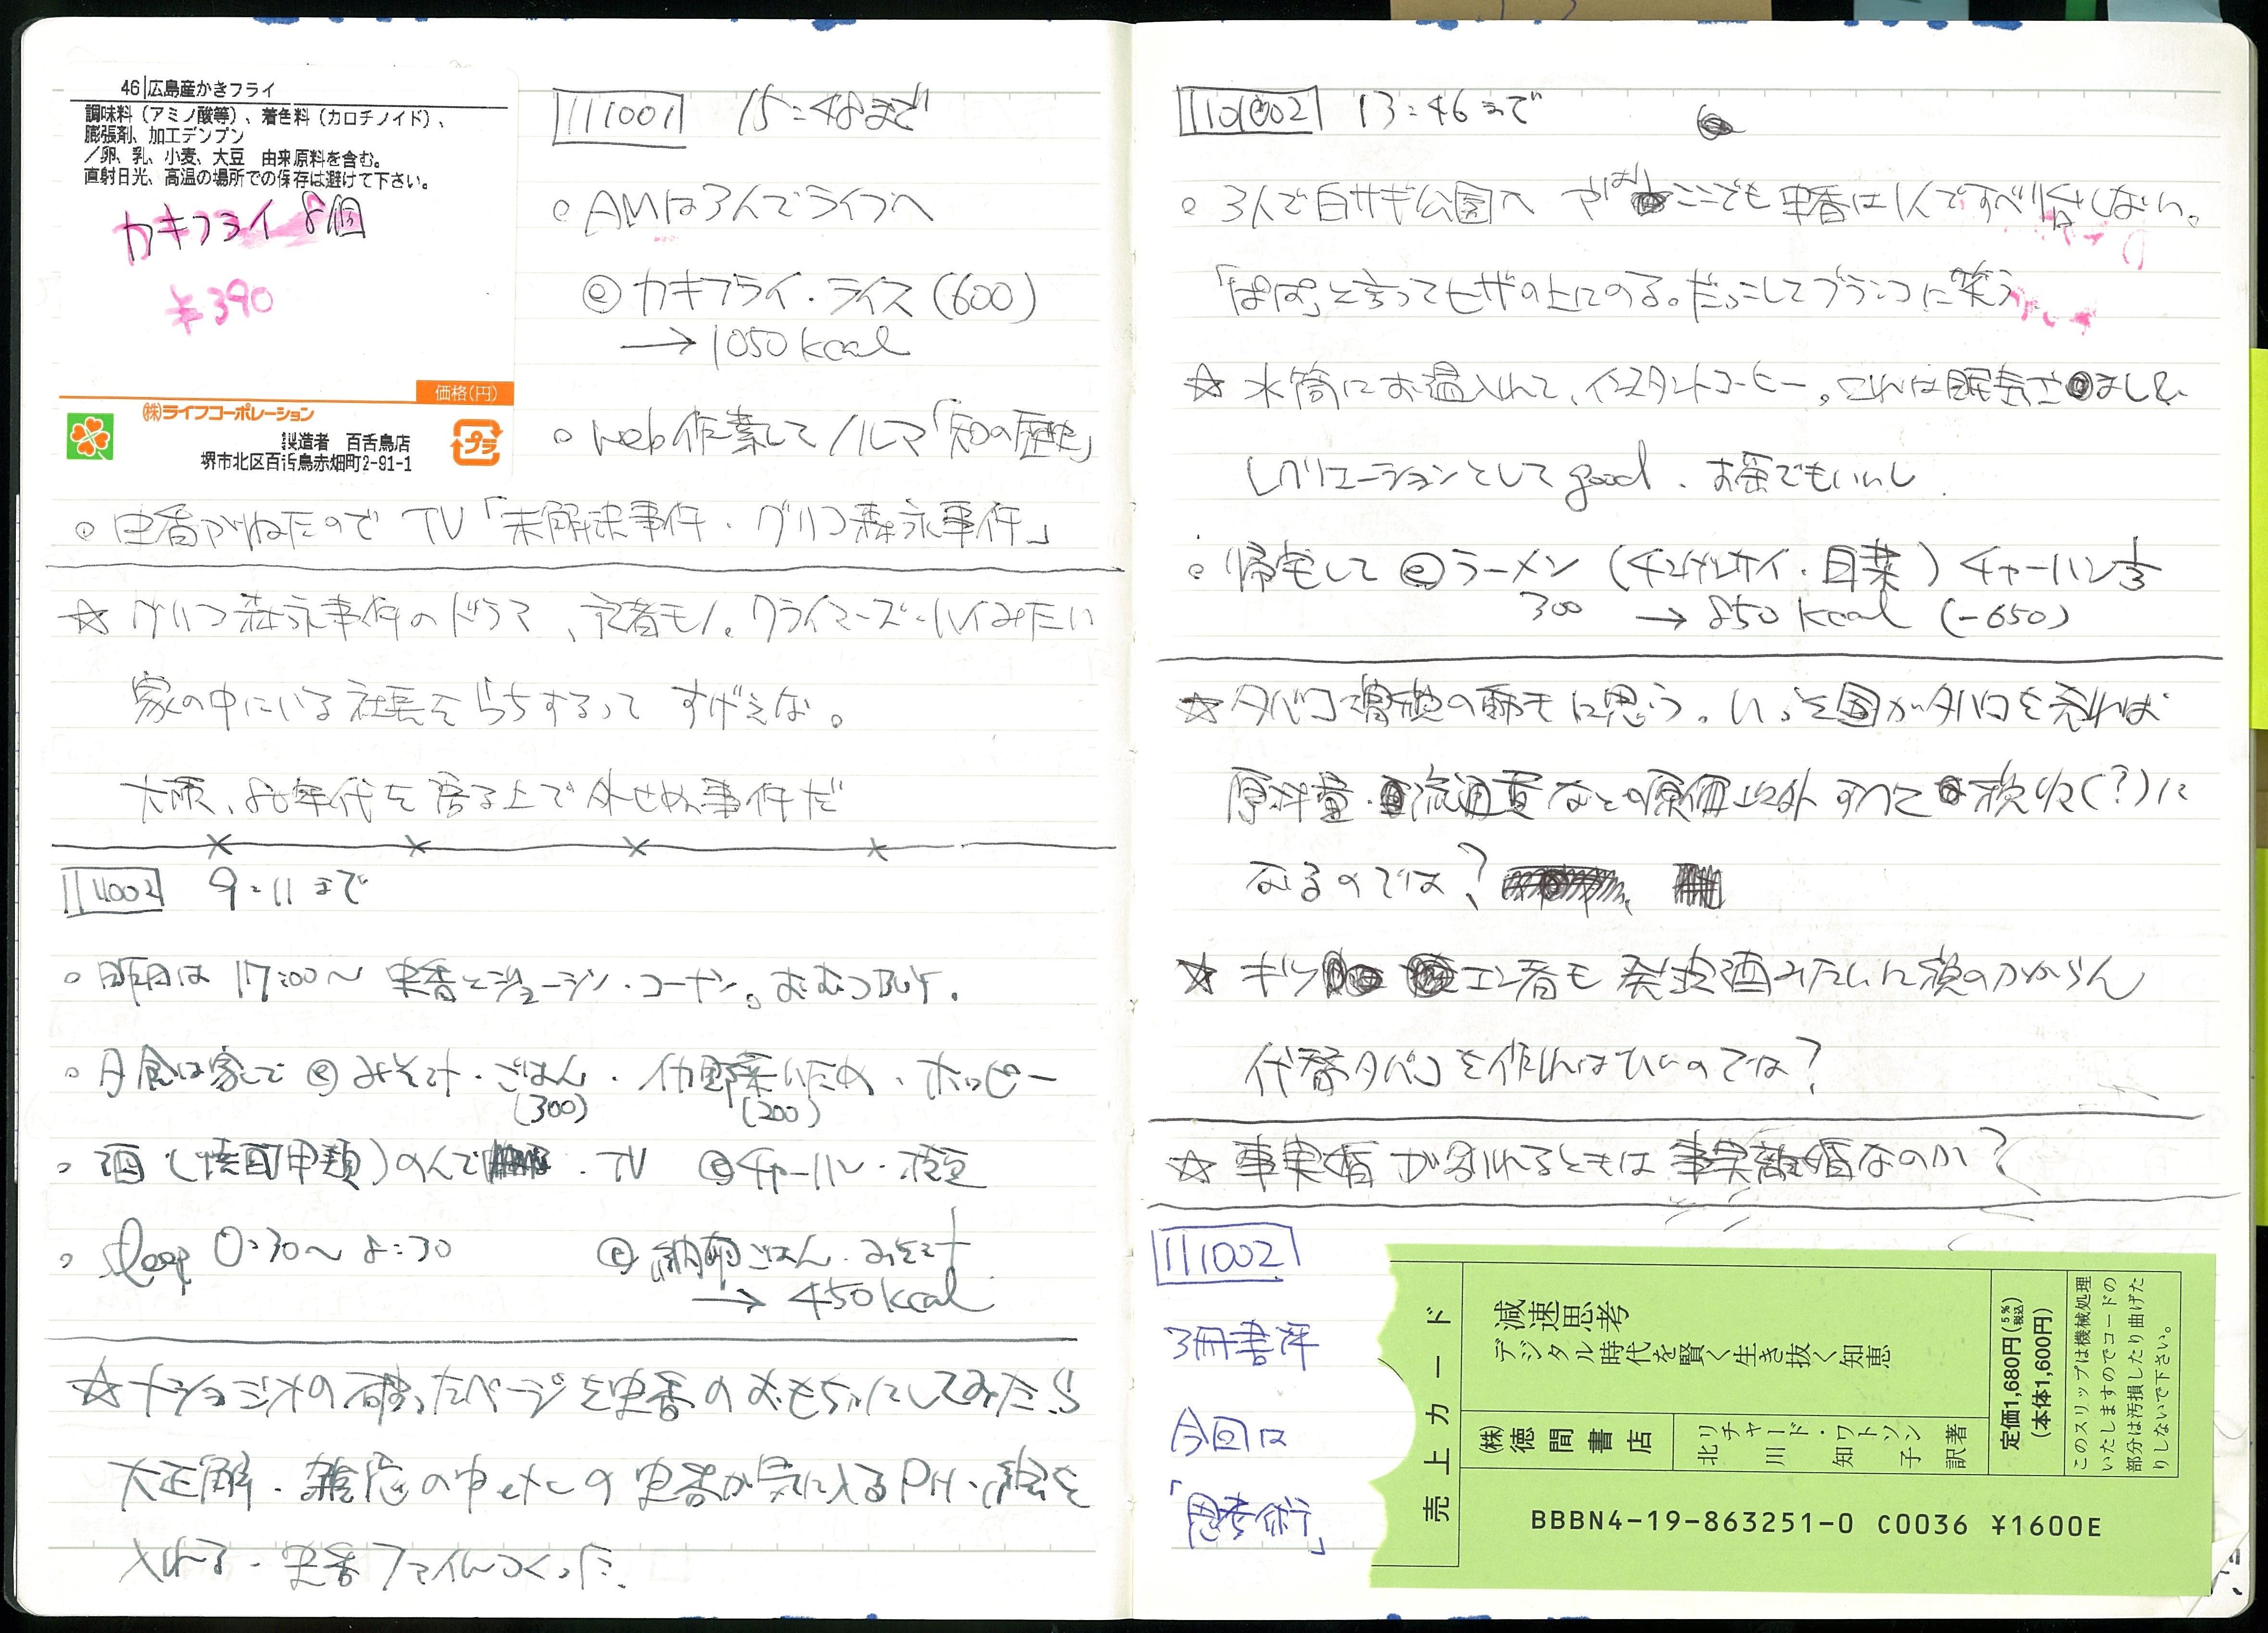 46 広島産かきフライ
調味料（アミノ酸等）、着色料（カロチノイド）、
膨張剤、加工デンプン
／卵、乳、小麦、大豆 由来原料を含む。
直射日光、高温の場所での保存は避けて下さい。
カキフライ 8個
¥390
価格(円)
㈱ライフコーポレーション
製造者 百舌鳥店
堺市北区百舌鳥赤畑町2-91-1
プラ
111001 15:48まで
○ AMは3人でライフへ
ⓔ カキフライ・ライス(600)
→ 1050 kcal
○ web作業してノルマ「知の歴史」
○ 史香がねたので TV「未解決事件・グリコ森永事件」
☆ グリコ森永事件のドラマ、記者モノ。クライマーズ・ハイみたい
家の中にいる社長をらちするって すげえな。
大阪、80年代を語る上で外せぬ事件だ
111002 9:11まで
○ 昨日は 17:00〜 史香とジョーシン・コーナン。おむつBUY.
○ 夕食は家で ⓔ みそ汁・ごはん・イカ野菜いため・ホッピー
(300) (200)
○ 酒(焼酎甲類)のんで TV ⓔチャーハン・枝豆
○ sleep 0:30〜8:30 ⓔ 納豆ごはん・みそ汁
→ 450kcal
☆ ナショジオの破ったページを史香のおもちゃにしてみたら
大正解・雑誌の中etcの史香が気に入るPH・絵を
入れる・史香ファイルつくった.
111002 13:46まで
○ 3人で白サギ公園へ やはりここでも史香は1人ですべり台しない。
「ぱぱ」と言ってヒザの上にのる。だっこしてブランコに笑う
☆ 水筒にお湯入れて、インスタントコーヒー。これは眠気さまし&
レクリエーションとしてgood. お茶でもいいし
○ 帰宅して ⓔラーメン (チンゲンサイ・白菜) チャーハン1/3
300 → 850 kcal (-650)
☆ タバコ増税の話に思う。いっそ国がタバコを売れば
原料費・流通費などの原価以外すべて税収(?)に
なるのでは?
☆ キツエン者も発泡酒みたいに税のかからん
代替タバコを作ればいいのでは?
☆ 事実婚が別れるときは事実離婚なのか?
111002
3冊書評
今回は
「思考術」
売上カード
減速思考
デジタル時代を賢く生き抜く知恵
㈱徳間書店
リチャード・ワトソン 著
北川 知子 訳
定価1,680円(5%税込)
(本体1,600円)
このスリップは機械処理
いたしますのでコードの
部分は汚損したり曲げた
りしないで下さい。
BBBN4-19-863251-0 C0036 ¥1600E